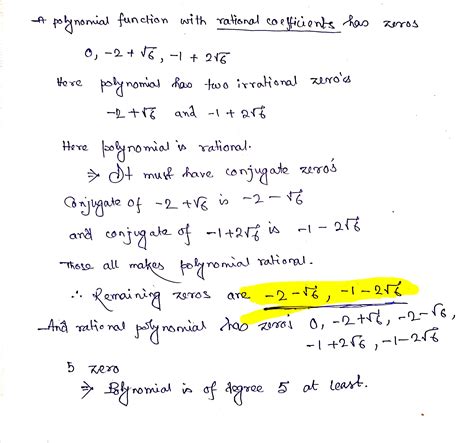 A polynomial function with rational coefficients has zeros
0, -2 + √6, -1 + 2√6
Here polynomial has two irrational zero's
-2 + √6 and -1 + 2√6
Here polynomial is rational.
⇒ It must have conjugate zero's
Conjugate of -2 + √6 is -2 - √6
and conjugate of -1 + 2√6 is -1 - 2√6
These all makes polynomial rational.
∴ Remaining zeros are -2 - √6, -1 - 2√6
And rational polynomial has zero's 0, -2 + √6, -2 - √6,
-1 + 2√6, -1 - 2√6
5 zero
⇒ Polynomial is of degree 5 at least.